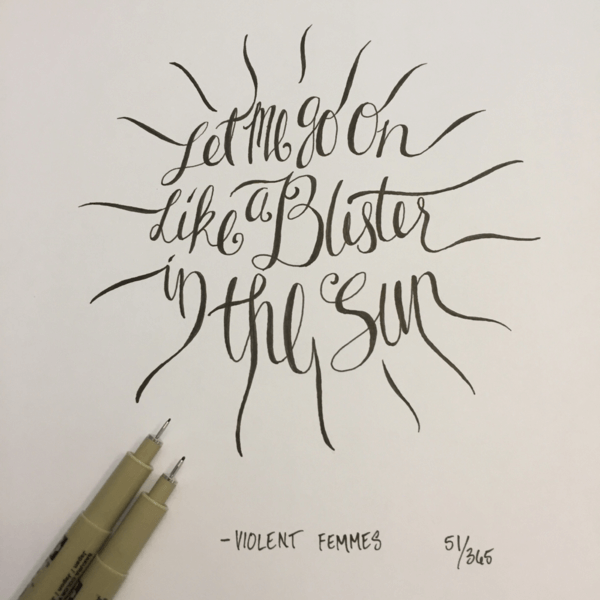 Let Me go On
Like a Blister
in the Sun
-VIOLENT FEMMES
51/365